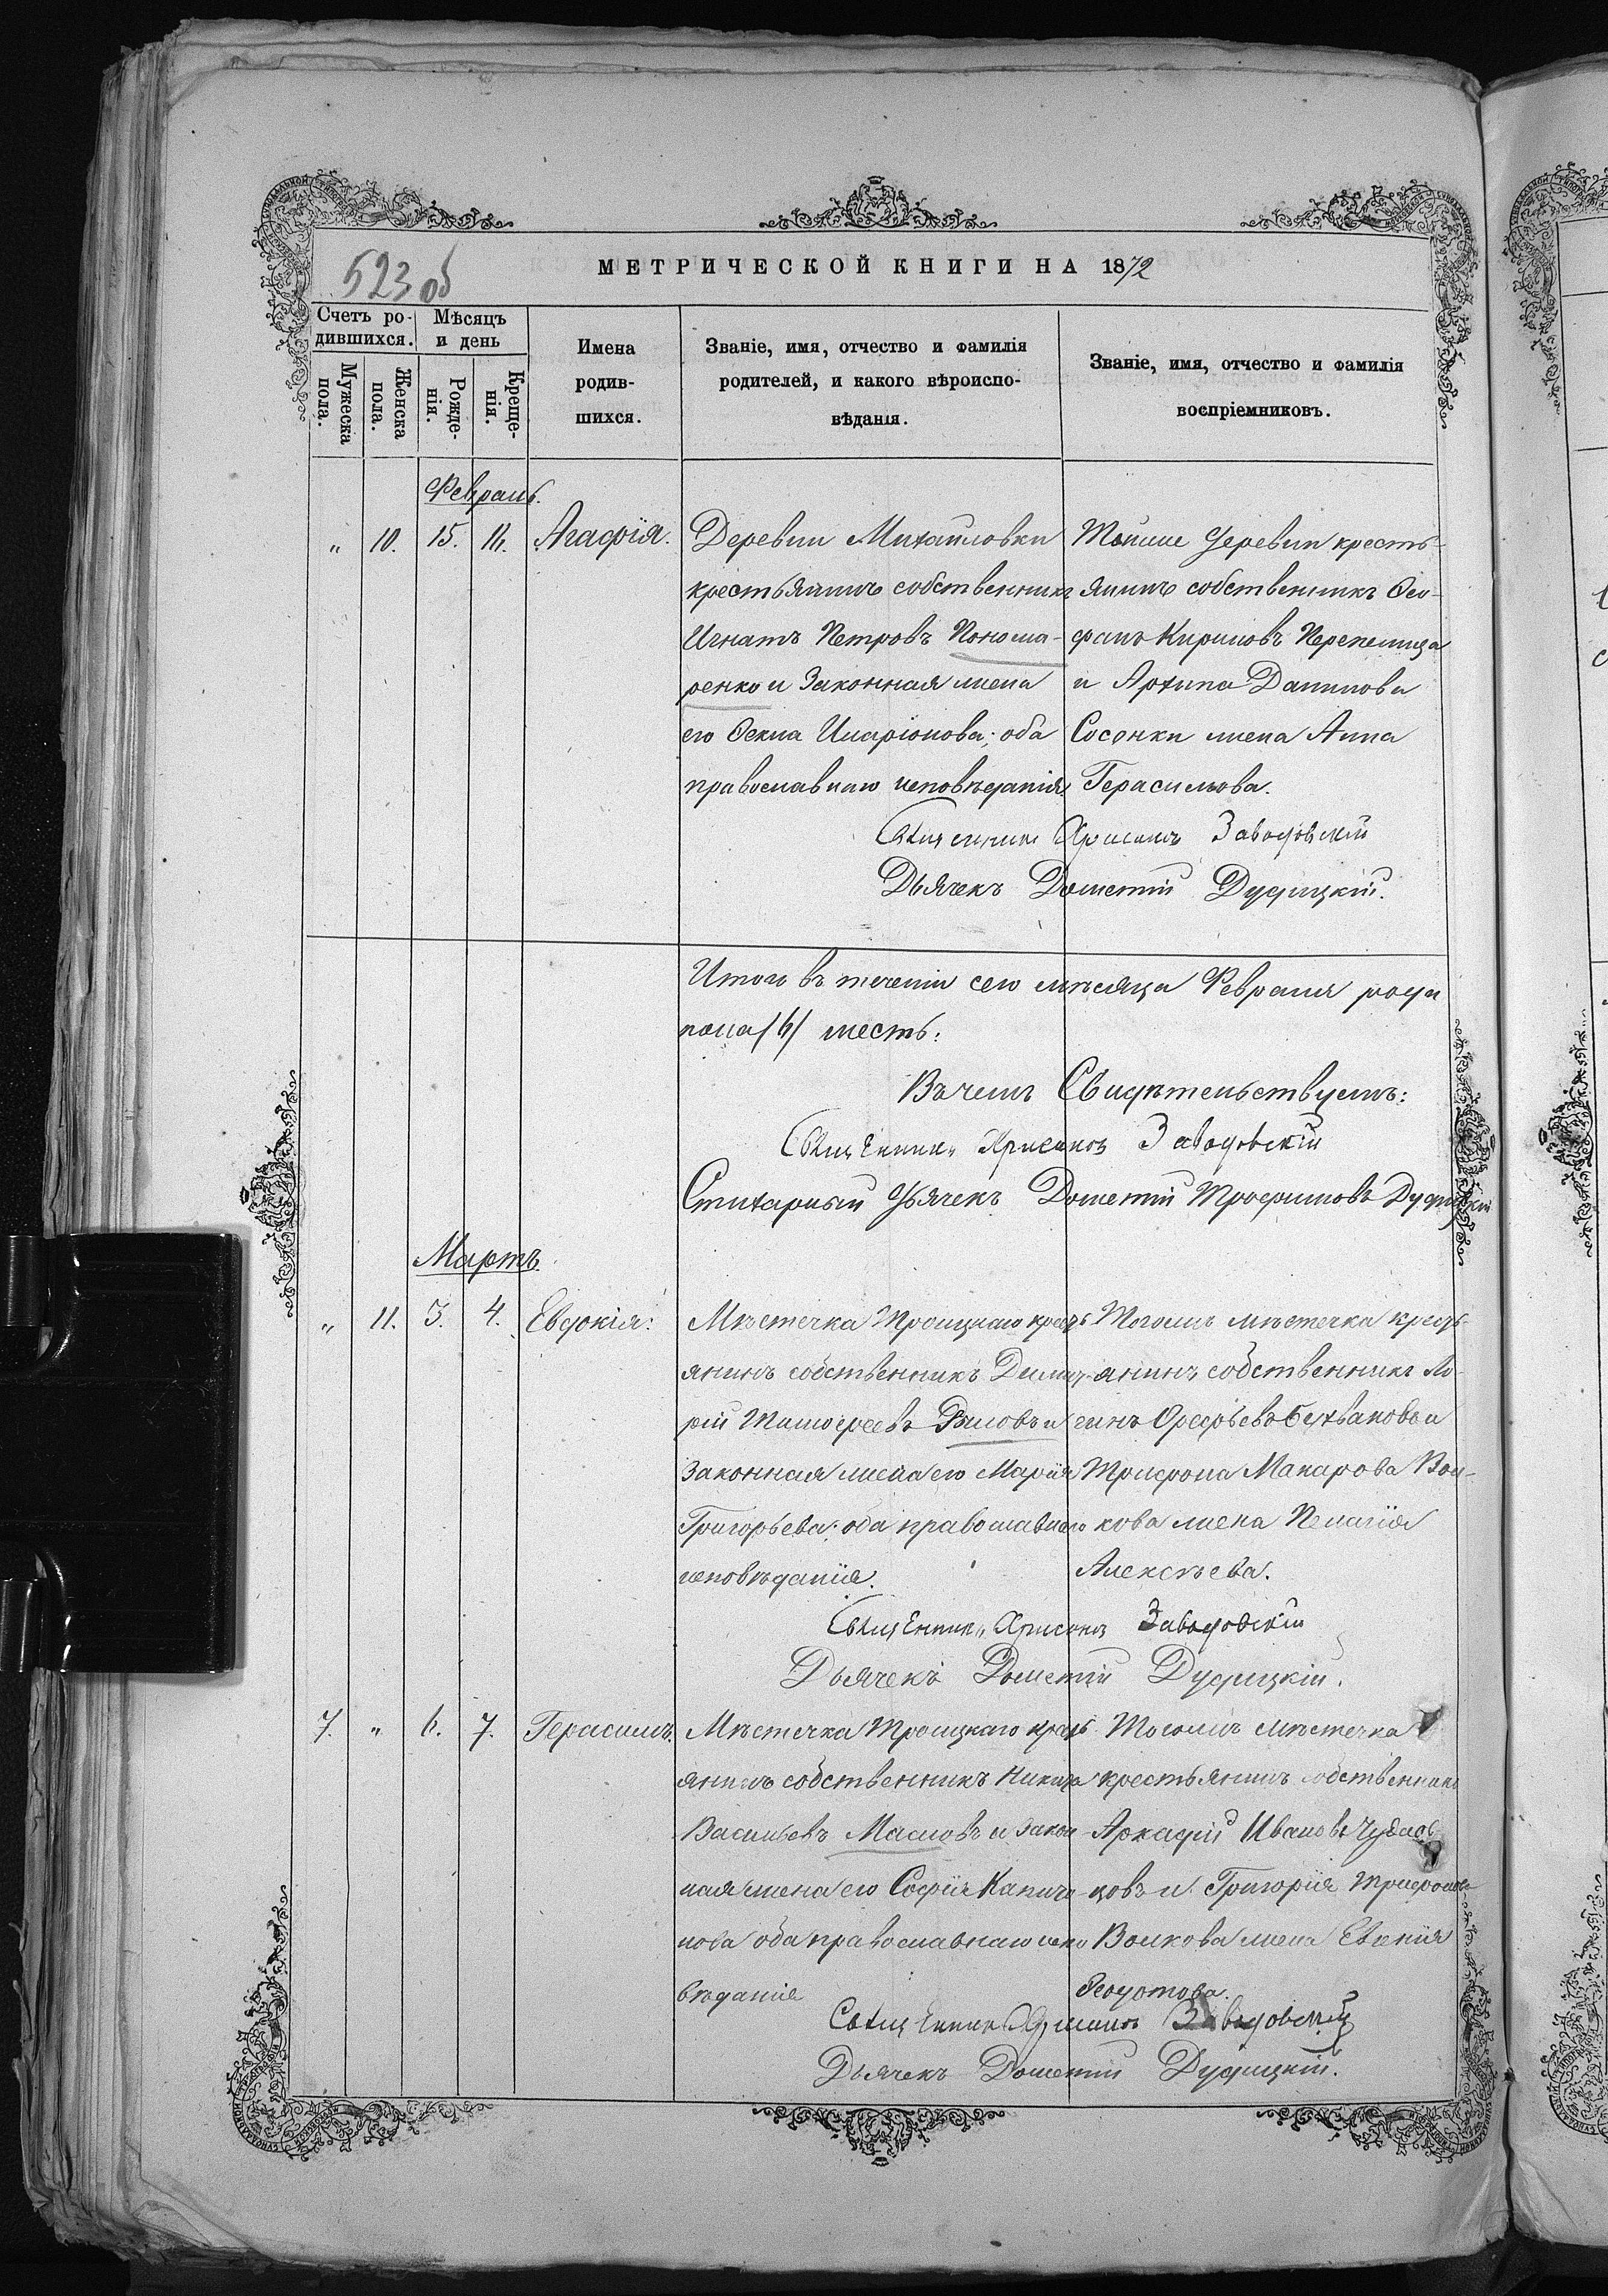 523 об
МЕТРИЧЕСКОЙ КНИГИ НА 1872
Счетъ ро-
дившихся.
Мѣсяцъ
и день
Мужеска
пола.
Женска
пола.
Рожде-
нія.
Креще-
нія.
Имена
родив-
шихся.
Званіе, имя, отчество и фамилія
родителей, и какого вѣроиспо-
вѣданія.
Званіе, имя, отчество и фамилія
воспріемниковъ.
Февраль.
„ 10. 15. 16. Агафія.
Деревни Михайловки
крестьянинъ собственникъ
Игнатъ Петровъ Понома-
ренко и законная жена
его Фекла Иларіонова; оба
православнаго исповѣданія.
Тойже деревни кресть-
янинъ собственникъ Фео-
фанъ Кириловъ Перепелица
и Архипа Данилова
Сосонки жена Анна
Герасимова.
Священникъ Хрисанѳъ Заводовскій
Дьячекъ Дометій Дуфицкій.
Итого въ теченіи сего мѣсяца Февраля
пола /6/ шесть:
Въ чемъ Свидѣтельствуемъ:
Священникъ Хрисанѳъ Заводовскій
Стихарный Дьячекъ Дометій Трофимовъ Дуфицкій
Мартъ.
„ 11. 3. 4. Евдокія:
Мѣстечка Троицкаго кресть
янинъ собственникъ Димит-
рій Тимофеевъ и
законная жена его Марія
Григорьева; оба православнаго
исповѣданія.
Тогожъ мѣстечка кресть
янинъ собственникъ Ло-
гинъ и
Трифона Макарова Вол-
кова жена Пелагія
Алексѣева.
Священникъ Хрисанѳъ Заводовскій
Дьячекъ Дометій Дуфицкій.
7. „ 6. 7. Герасимъ.
Мѣстечка Троицкаго кресть
янинъ собственникъ Никита
Васильевъ Масловъ и закон
ная жена его Софія
нова оба православнаго испо
вѣданія
Тогожъ мѣстечка
крестьянинъ собственникъ
Аркадій Ивановъ
цовъ и Григорія Трифонова
Волкова жена Евгенія
Федотова.
Священникъ Хрисанѳъ Заводовскій
Дьячекъ Дометій Дуфицкій.